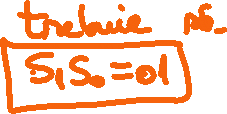 trebuie să
S₁S₀=01